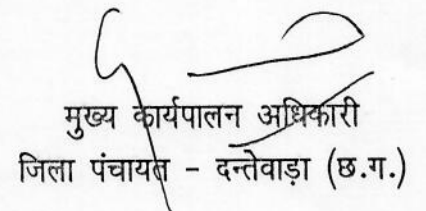 मुख्य कार्यपालन अधिकारी
जिला पंचायत - दन्तेवाड़ा (छ.ग.)